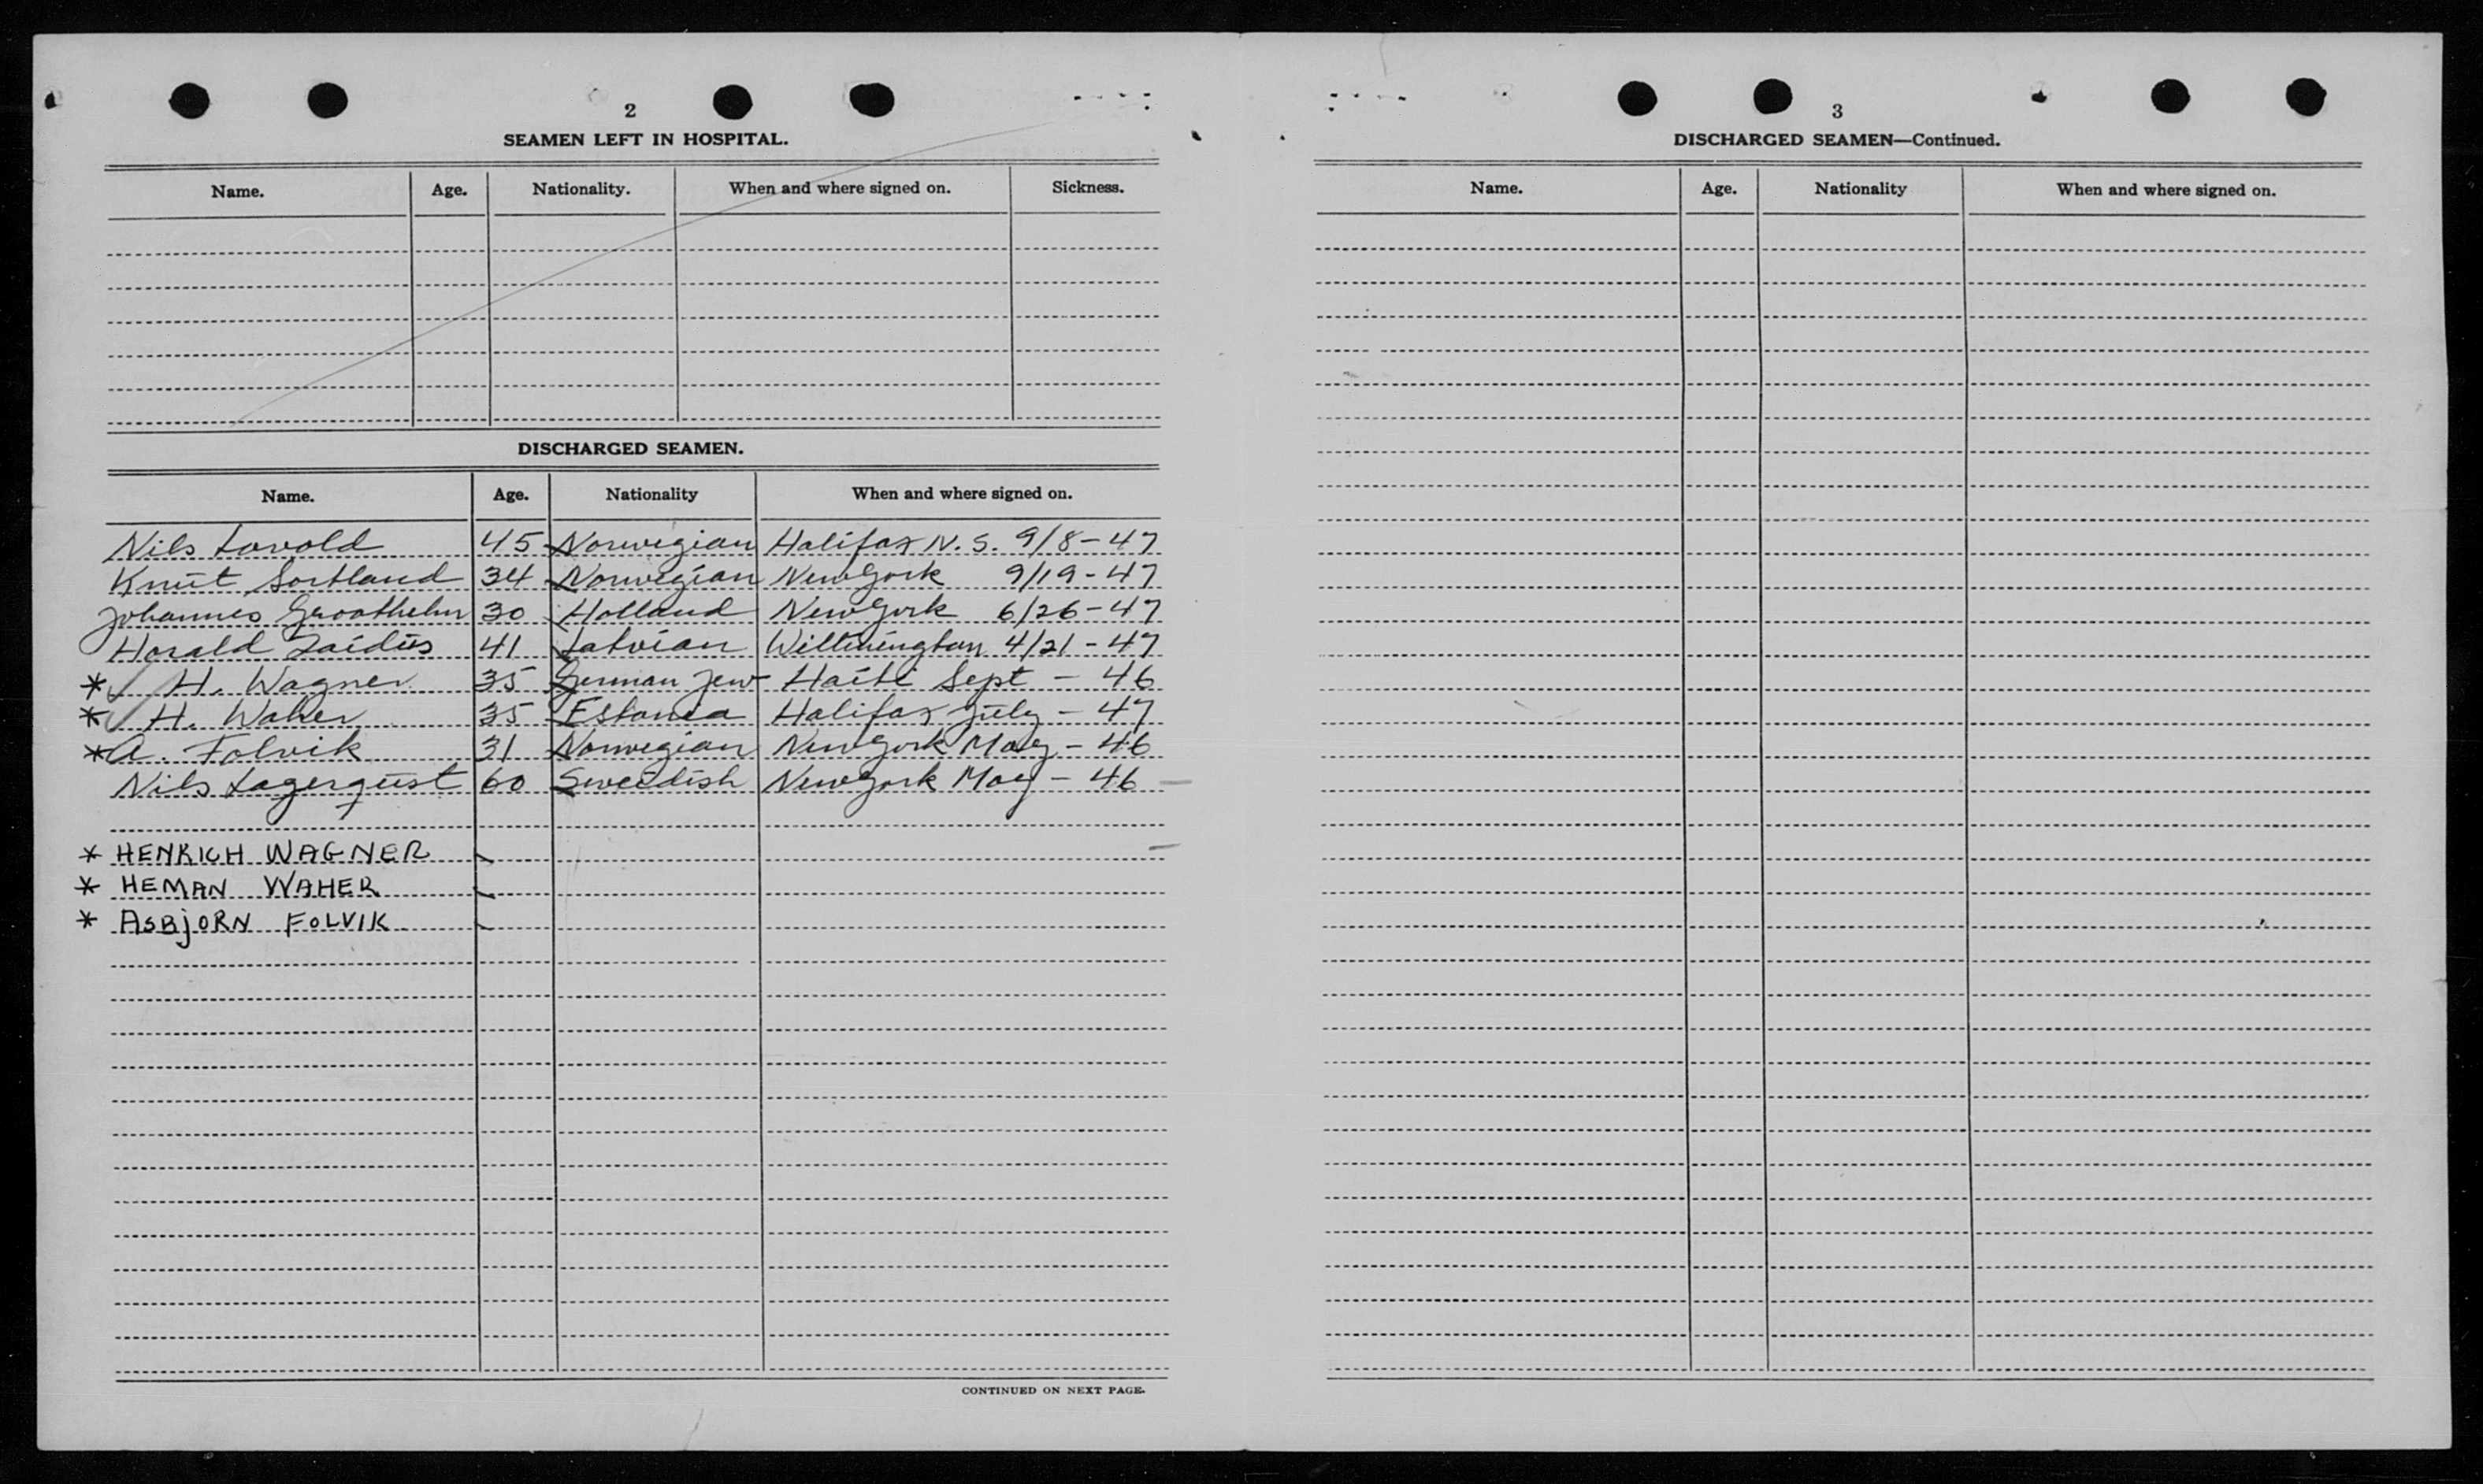 2
SEAMEN LEFT IN HOSPITAL.
Name. Age. Nationality. When and where signed on. Sickness.
DISCHARGED SEAMEN.
Name. Age. Nationality When and where signed on.
Nils Lovold 45 Norwegian Halifax N.S. 9/8-47
Knut Sortland 34 Norwegian New York 9/19-47
Johannes 30 Holland New York 6/26-47
Harald Zaidus 41 Latvian Willmington 4/21-47
* H. Wagner 35 German Jew Haiti Sept - 46
* H. Waher 35 Estonia Halifax July - 47
* A. Folvik 31 Norwegian New York May - 46
Nils Lagerquist 60 Sweedish New York May - 46
* HENRICH WAGNER
* HEMAN WAHER
* ASBjORN FOLVIK
CONTINUED ON NEXT PAGE.
3
DISCHARGED SEAMEN—Continued.
Name. Age. Nationality When and where signed on.